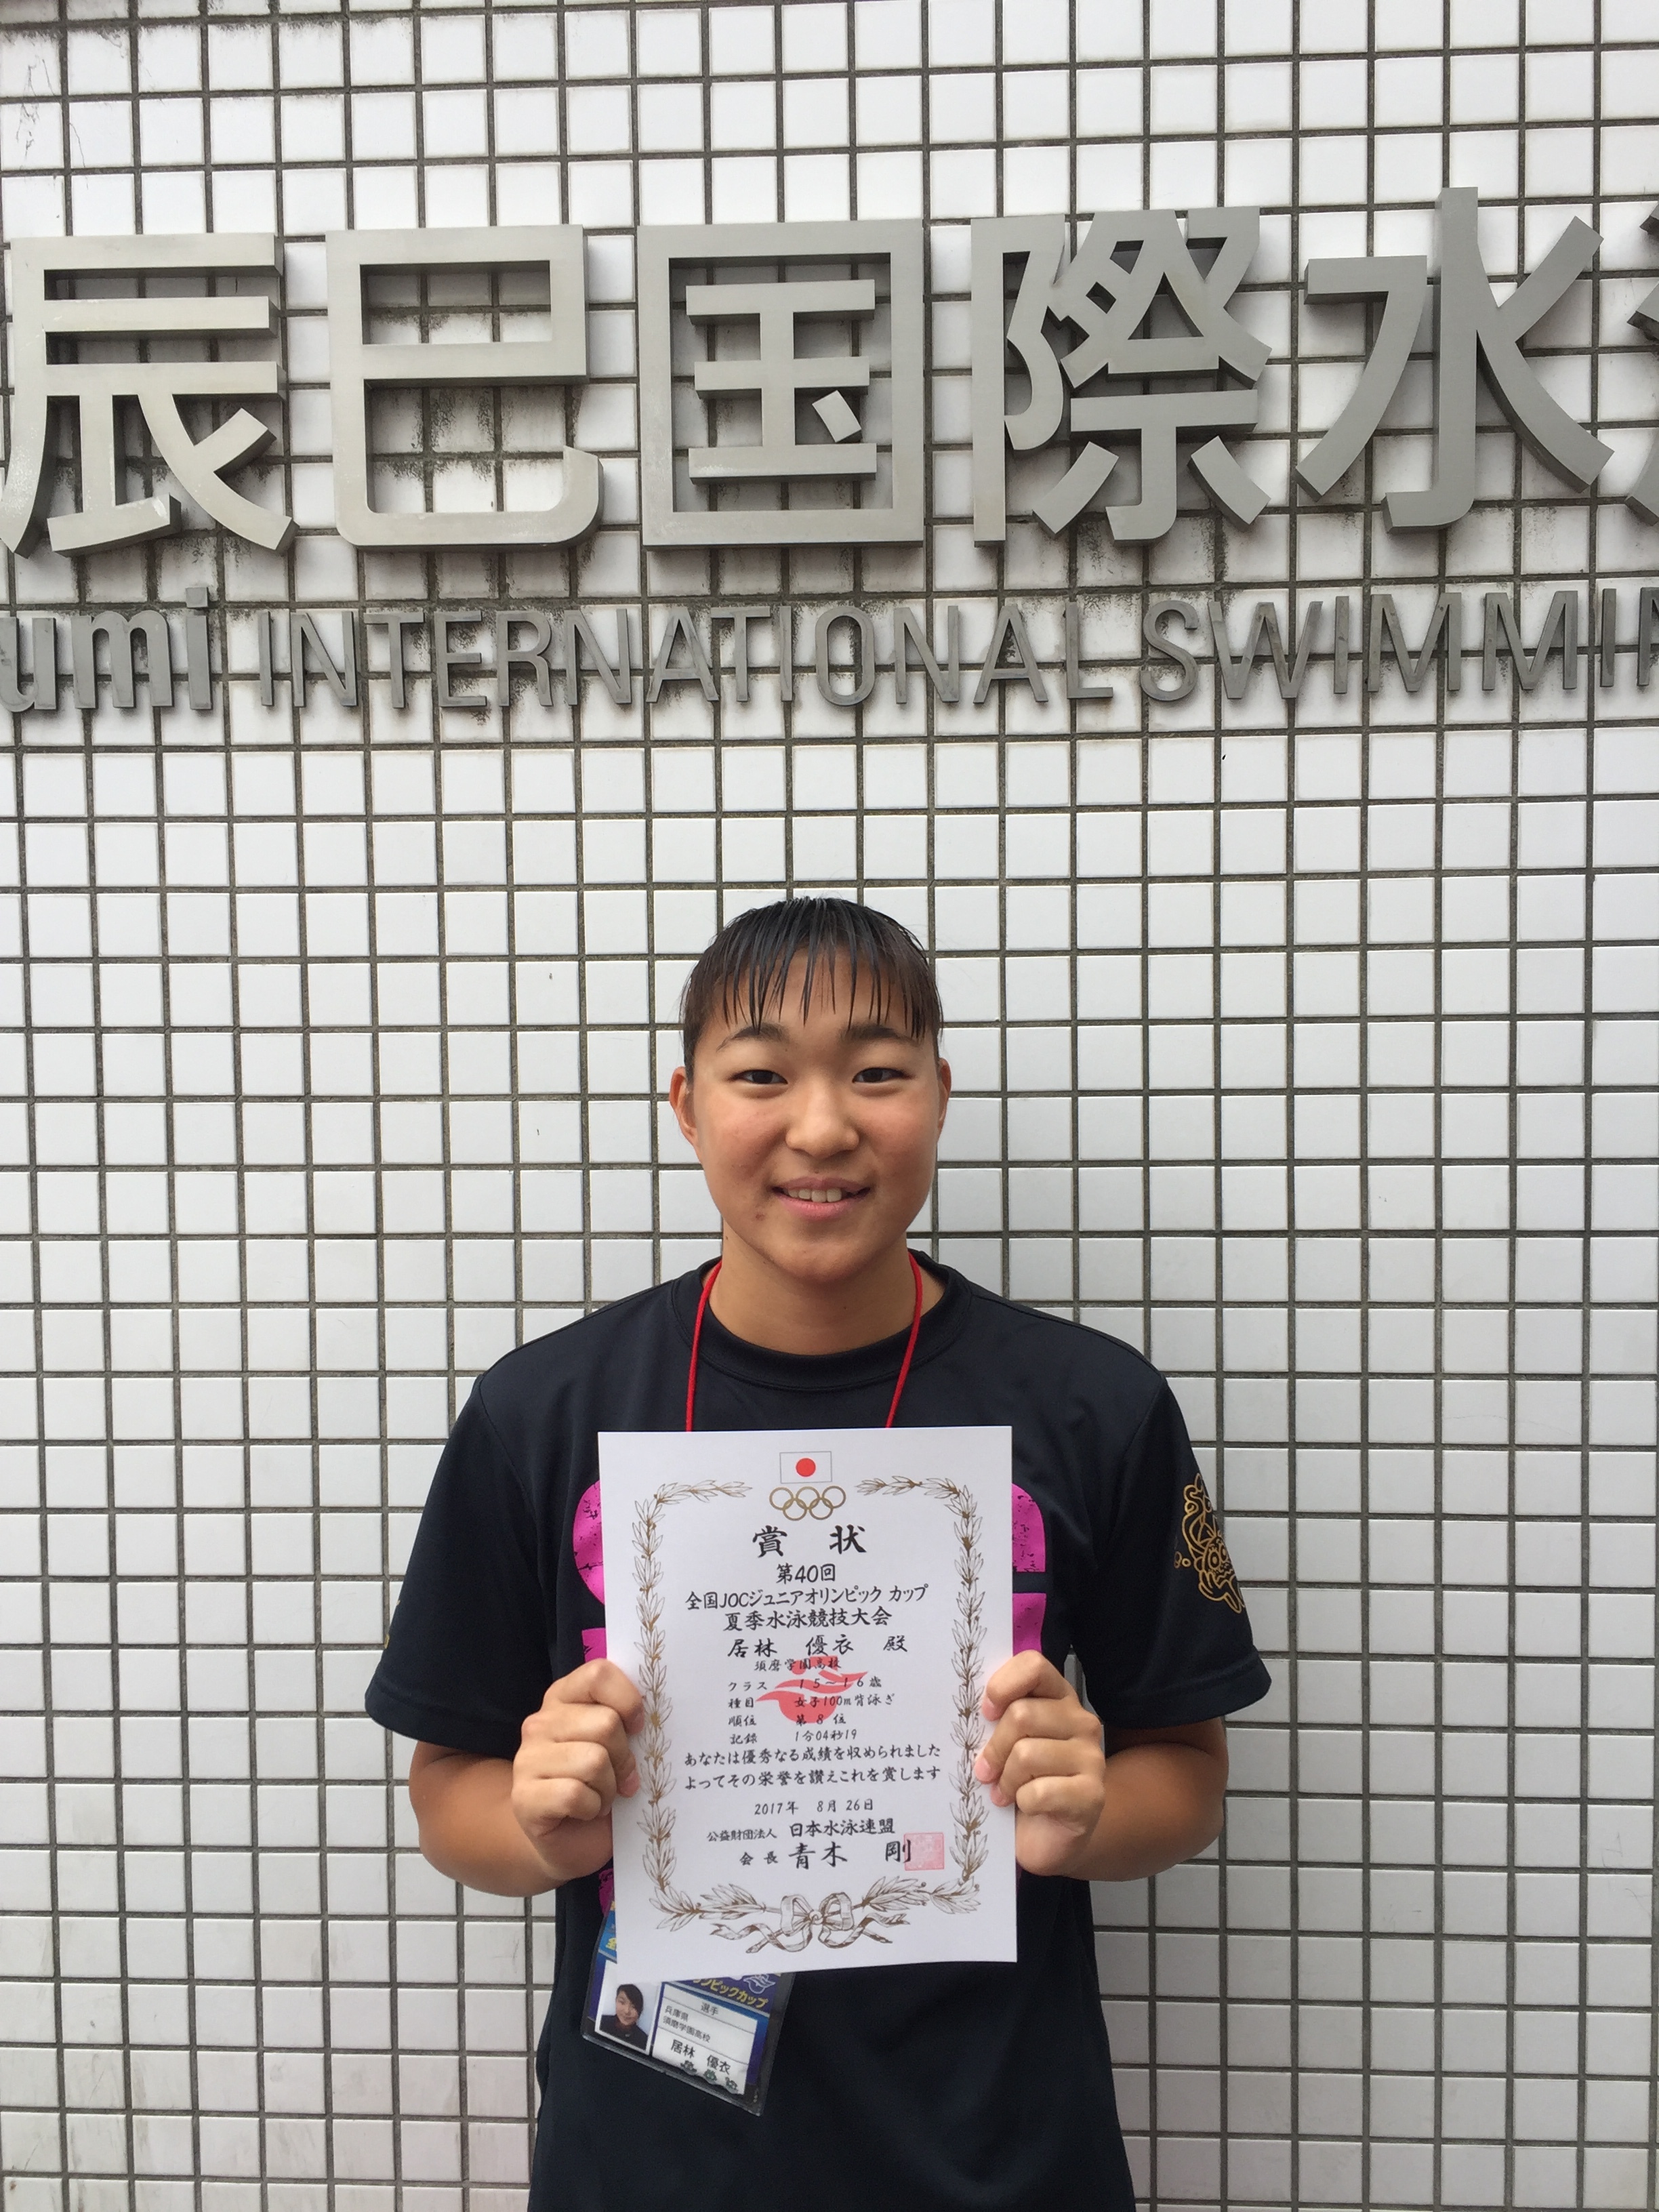 辰巳国際水
umi INTERNATIONAL SWIMMIN
賞 状
第40回
全国JOCジュニアオリンピック カップ
夏季水泳競技大会
居林 優衣 殿
須磨学園高校
クラス 15~16歳
種目 女子100m背泳ぎ
順位 第 8 位
記録 1分04秒19
あなたは優秀なる成績を収められました
よってその栄誉を讃えこれを賞します
2017年 8月 26日
公益財団法人 日本水泳連盟
会 長 青木 剛
ンピックカップ
選手
兵庫県
須磨学園高校
居林 優衣